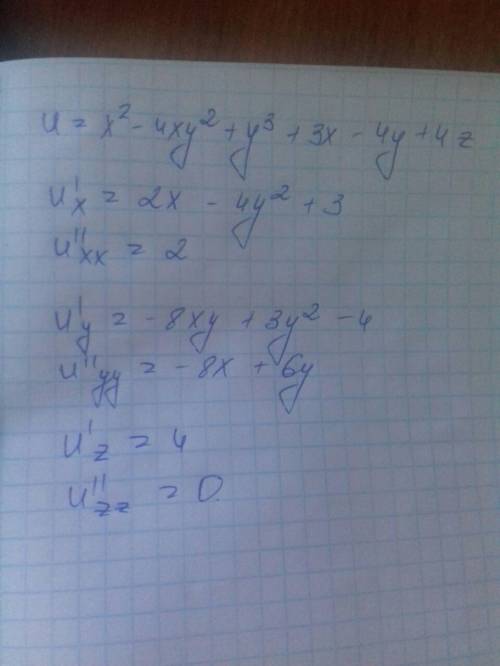 u = x² - 4xy² + y³ + 3x - 4y + 4z
u'x = 2x - 4y² + 3
u''xx = 2
u'y = -8xy + 3y² - 4
u''yy = -8x + 6y
u'z = 4
u''zz = 0